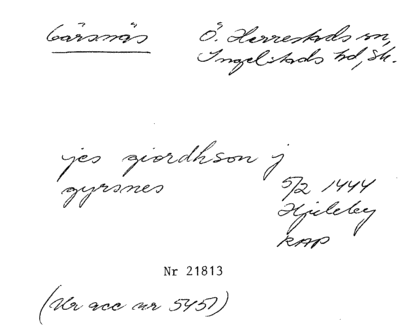 Gärsnäs
Ö. Herrestads sn,
Ingelstads hd, Sk.
jes giordhson j
gyrsnes
5/2 1444
Hjuleby
RAP
Nr 21813
(Ur acc nr 5457)